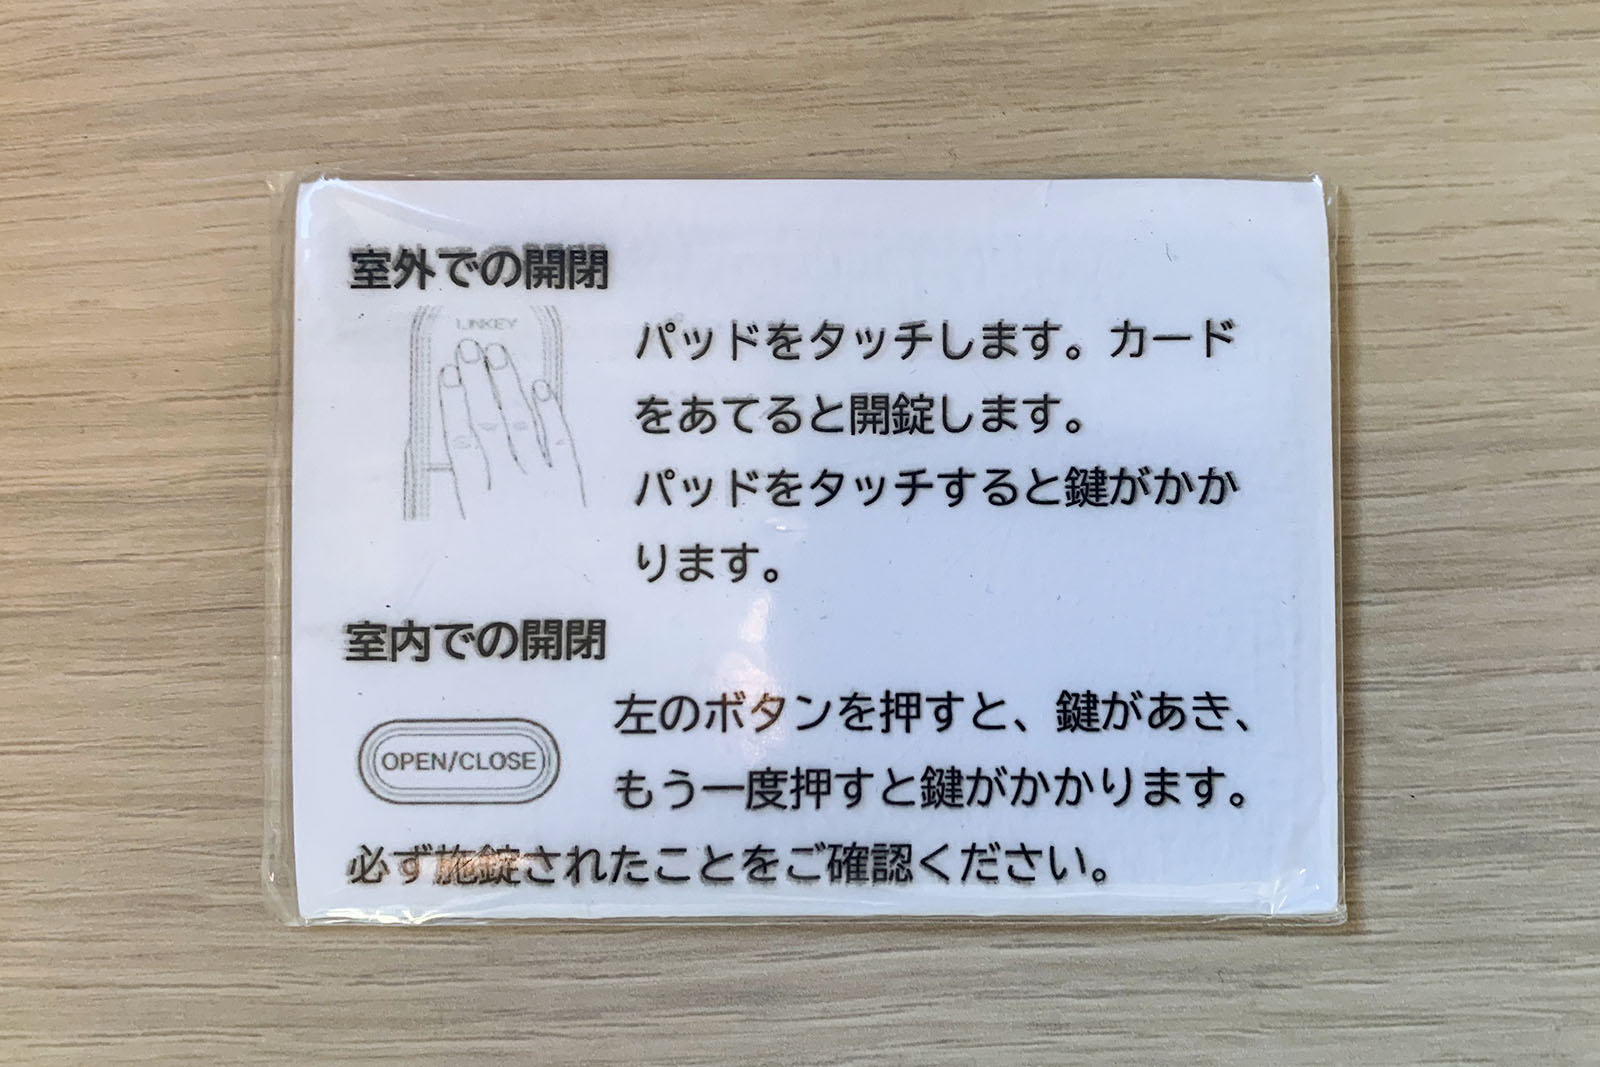 室外での開閉
LINKEY
パッドをタッチします。カード
をあてると開錠します。
パッドをタッチすると鍵がかか
ります。
室内での開閉
OPEN/CLOSE
左のボタンを押すと、鍵があき、
もう一度押すと鍵がかかります。
必ず施錠されたことをご確認ください。